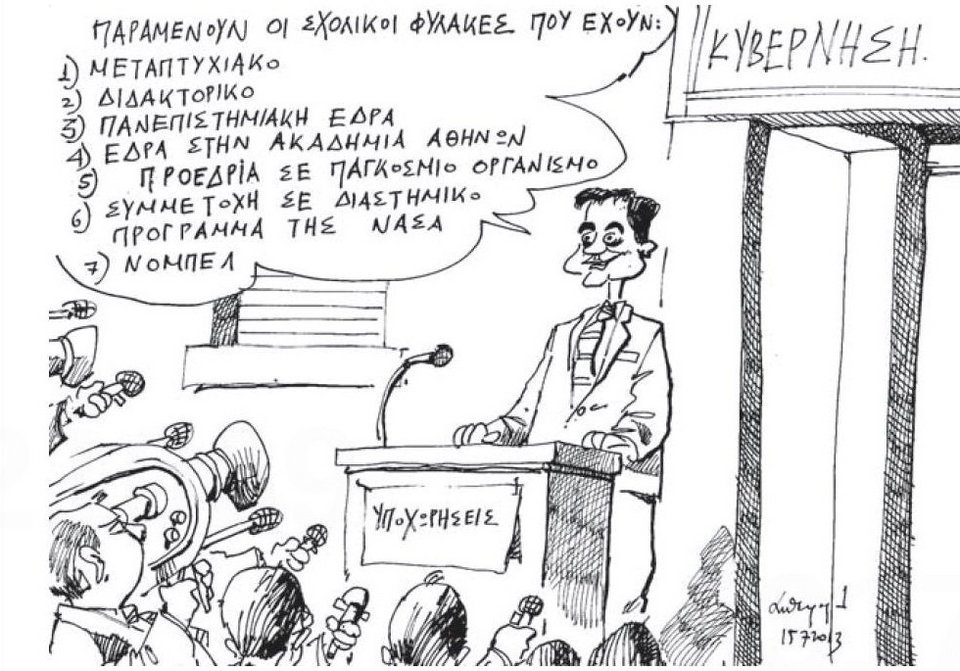 ΠΑΡΑΜΕΝΟΥΝ ΟΙ ΣΧΟΛΙΚΟΙ ΦΥΛΑΚΕΣ ΠΟΥ ΕΧΟΥΝ:
1) ΜΕΤΑΠΤΥΧΙΑΚΟ
2) ΔΙΔΑΚΤΟΡΙΚΟ
3) ΠΑΝΕΠΙΣΤΗΜΙΑΚΗ ΕΔΡΑ
4) ΕΔΡΑ ΣΤΗΝ ΑΚΑΔΗΜΙΑ ΑΘΗΝΩΝ
5) ΠΡΟΕΔΡΙΑ ΣΕ ΠΑΓΚΟΣΜΙΟ ΟΡΓΑΝΙΣΜΟ
6) ΣΥΜΜΕΤΟΧΗ ΣΕ ΔΙΑΣΤΗΜΙΚΟ
ΠΡΟΓΡΑΜΜΑ ΤΗΣ ΝΑΣΑ
7) ΝΟΜΠΕΛ
ΚΥΒΕΡΝΗΣΗ.
ΥΠΟΧΩΡΗΣΕΙΣ
1572013